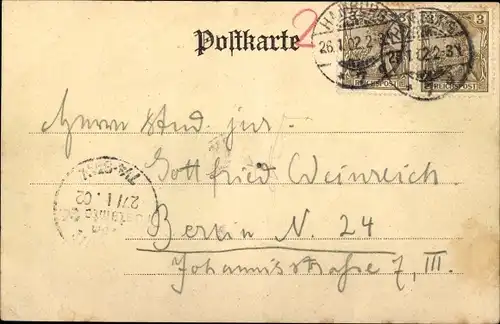 Postkarte 2
HAMBURG
26.1.02.2-3N.
3 3
REICHSPOST REICHSPOST
Herrn stud. jur.
Gottfried Weinreich
Berlin N. 24
Johannisstraße 7, III.
27/1.02